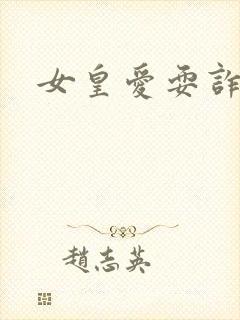 女皇愛耍詐
趙志英